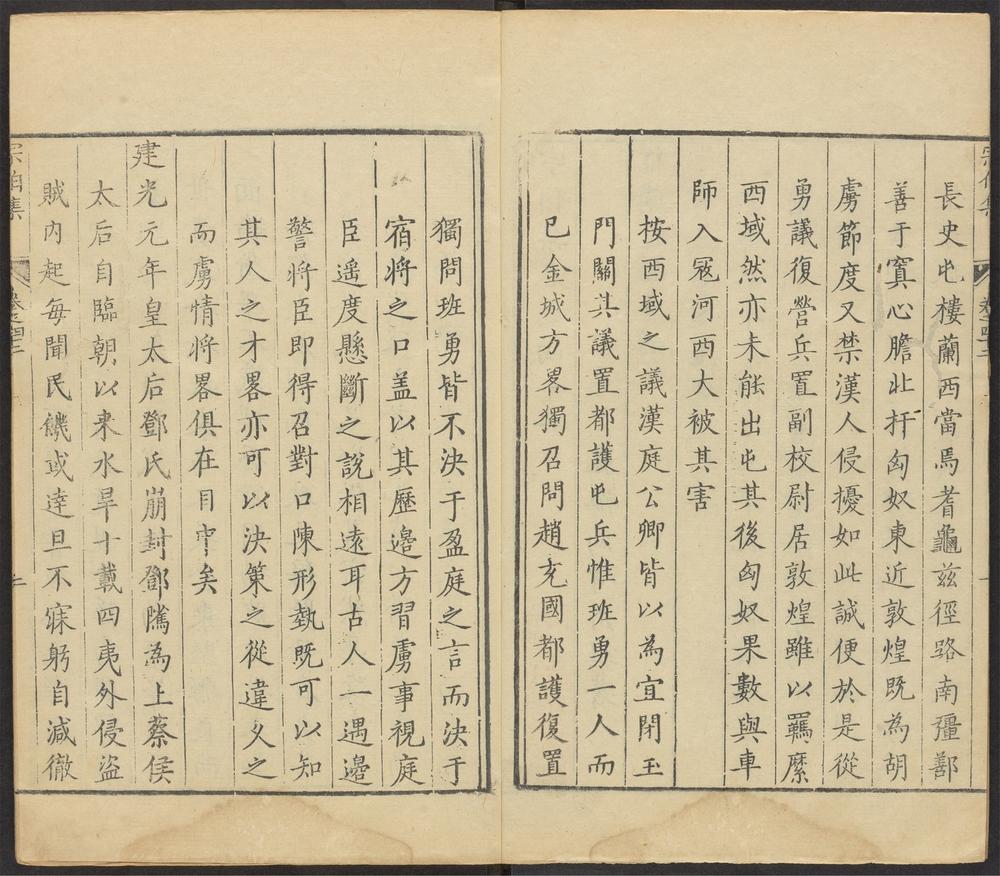 長史屯樓蘭西當焉耆龜茲徑路南彊鄯
善于窴心膽北扞匈奴東近敦煌既為胡
虜節度又禁漢人侵擾如此誠便於是從
勇議復營兵置副校尉居敦煌雖以羈縻
西域然亦未能出屯其後匈奴果數與車
師入冦河西大被其害
按西域之議漢庭公卿皆以為宜閉玉
門關其議置都護屯兵惟班勇一人而
已金城方畧獨召問趙充國都護復置
獨問班勇皆不決于盈庭之言而決于
宿將之口盖以其歷邉方習虜事視庭
臣遥度懸斷之說相遠耳古人一遇邉
警將臣即得召對口陳形執既可以知
其人之才畧亦可以決策之從違夂之
而虜情將畧俱在目中矣
建光元年皇太后鄧氏崩封鄧騭為上蔡侯
太后自臨朝以来水旱十載四夷外侵盜
賊内起毎聞民饑或逹旦不寐躬自減徹
宗伯集
卷之四十三
二